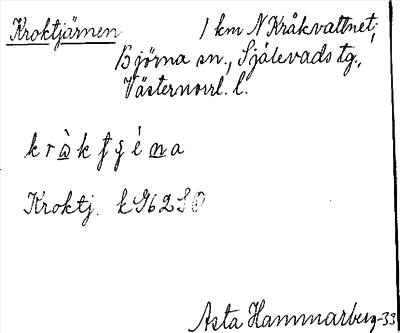 Kroktjärnen 1 km N Kråkvattnet,
Björna sn., Själevads tg.,
Västernorrl. l.
Kroktj. k962SO
Asta Hammarberg-33